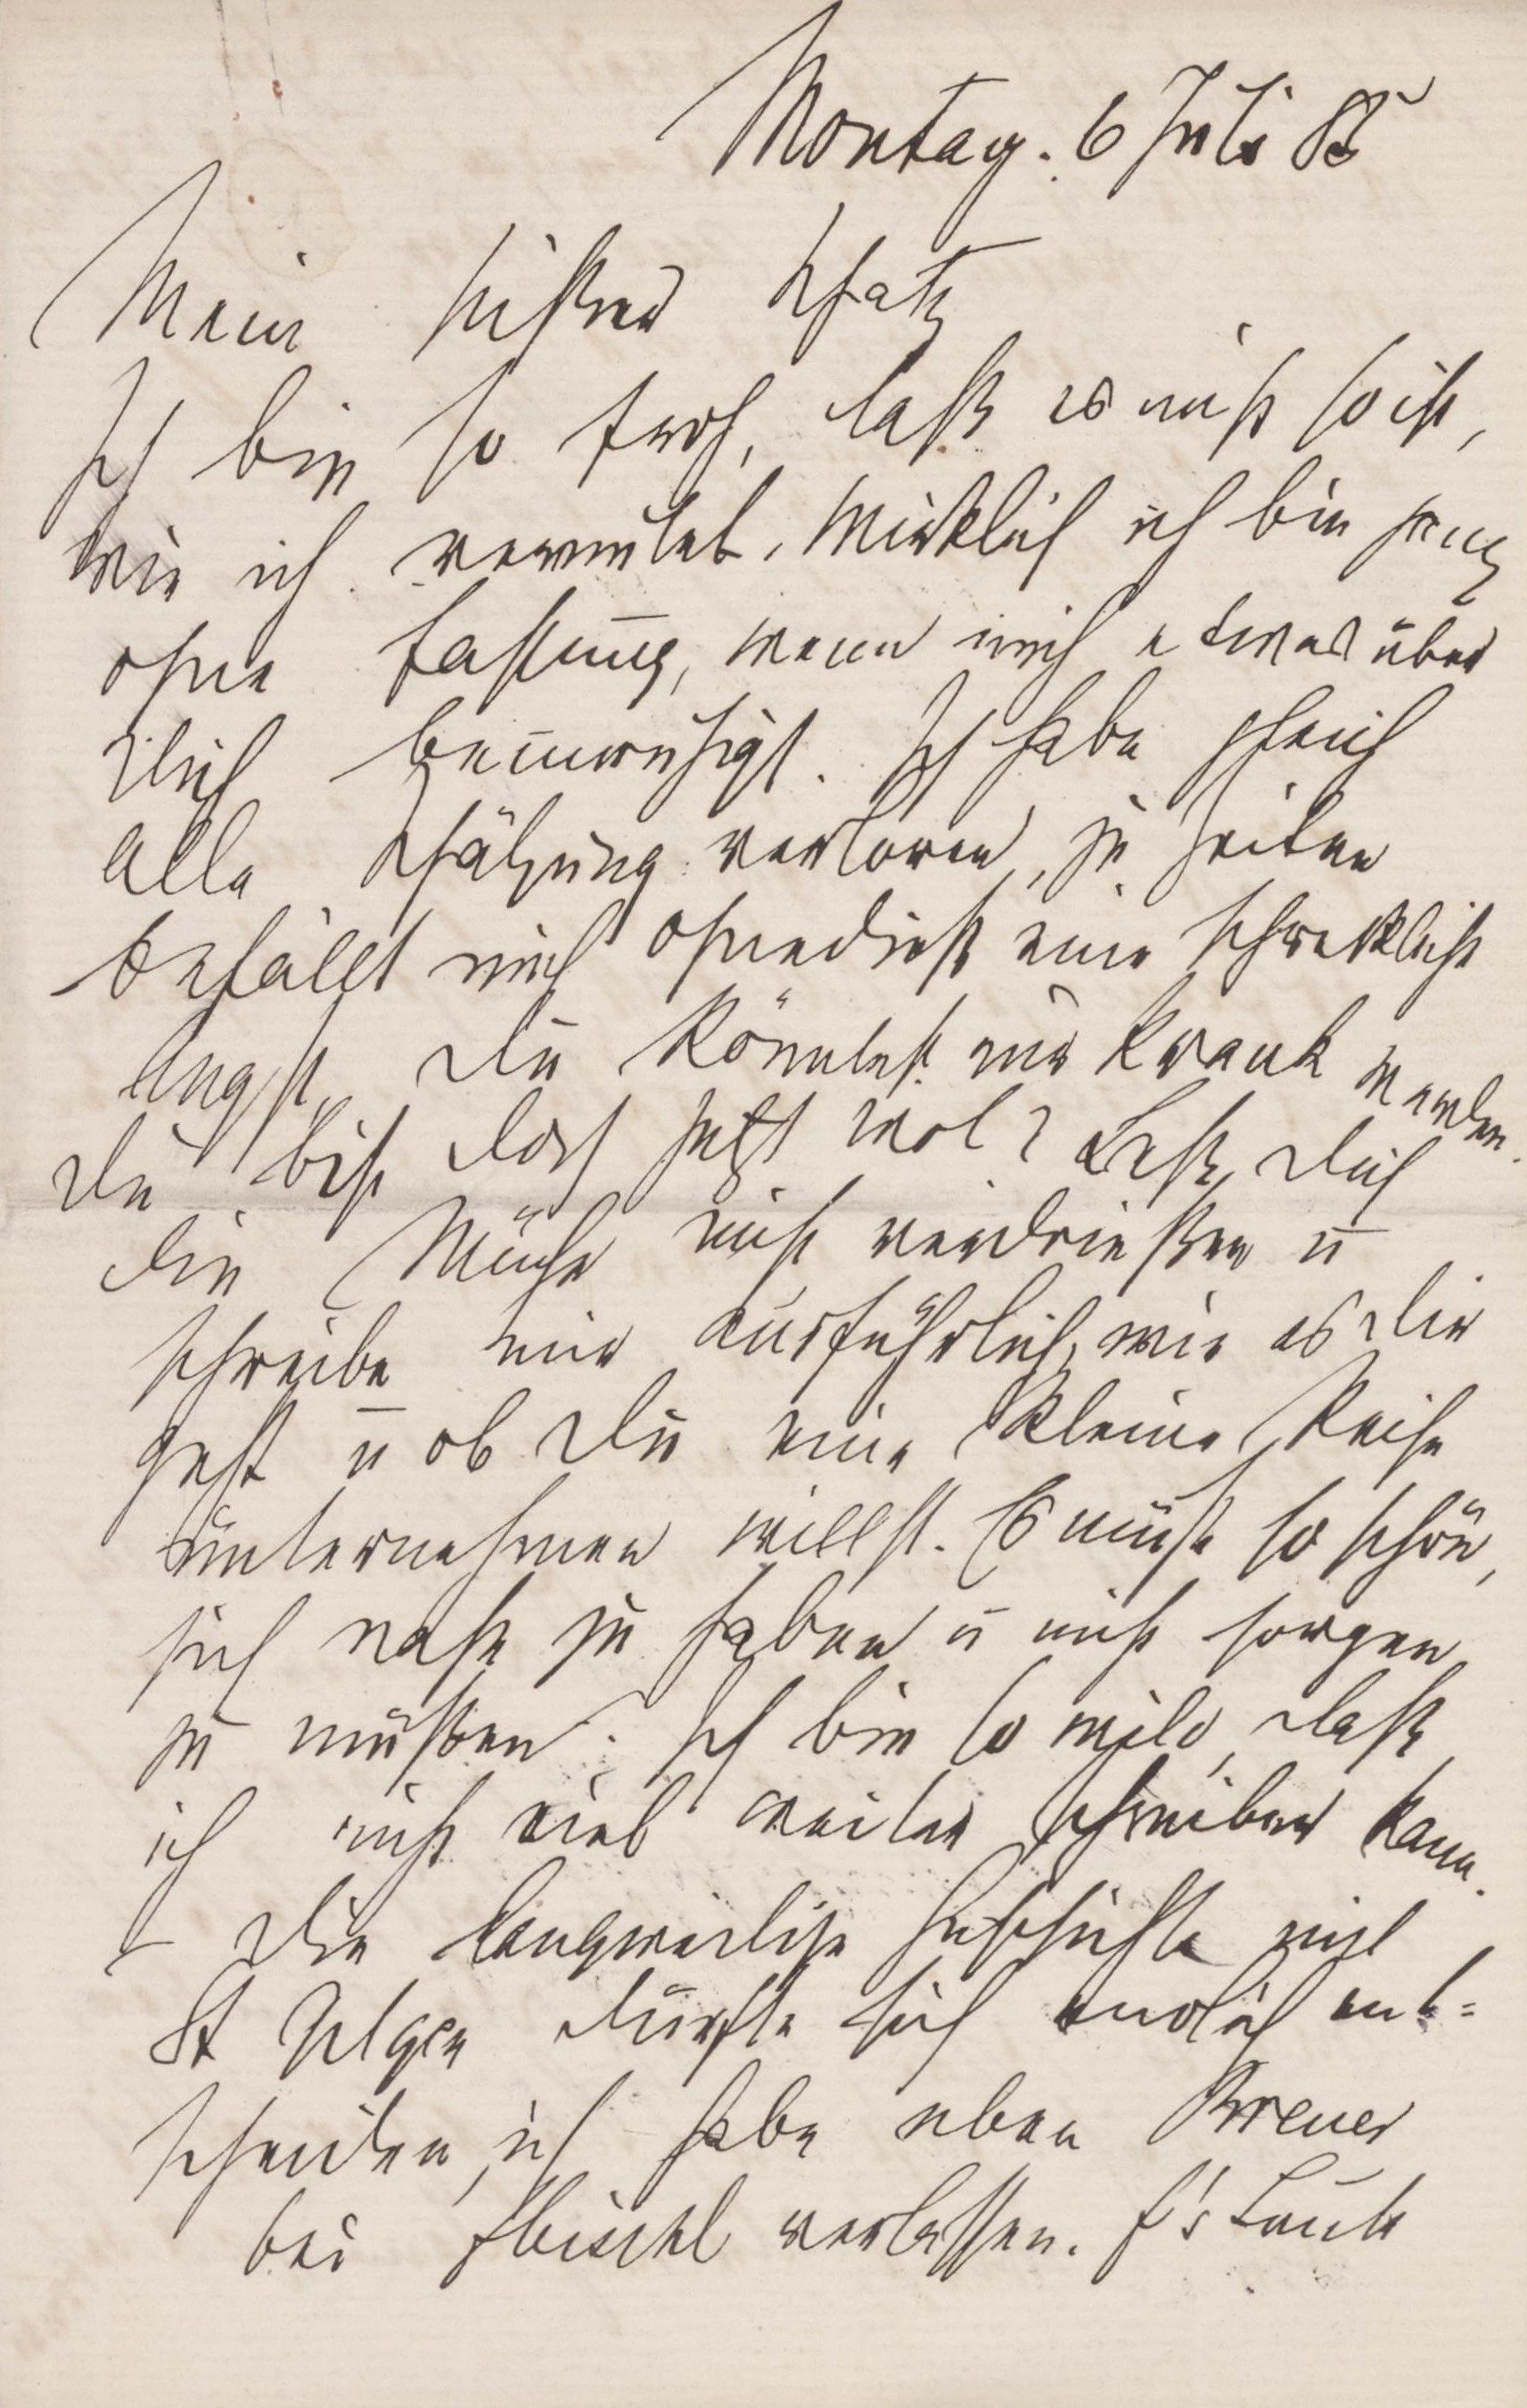 Montag. 6 Juli 85
Mein süßer Schatz
Ich bin so froh, daß es nicht so ist,
wie ich vermutet. Wirklich ich bin ganz
ohne Fassung, wenn mich etwas über
Dich beunruhigt. Ich habe gleich
alle Schätzung verloren, zu Zeiten
befällt mich ohnedieß eine schreckliche
Angst, Du könntest mir krank werden.
Du bist doch jetzt wol? Laß Dich
die Mühe nicht verdrießen u
schreibe mir ausführlich, wie es Dir
geht u ob Du eine kleine Reise
unternehmen willst. Es müßte so schön,
sich nahe zu haben u nicht sorgen
zu müßen. Ich bin so wild, daß
ich nicht viel weiter schreiben kann.
Die langweilige Geschichte mit
St Gilgen dürfte sich endlich ent=
scheiden, ich habe eben Breuer
bei Fleischl verlassen. F's Leute